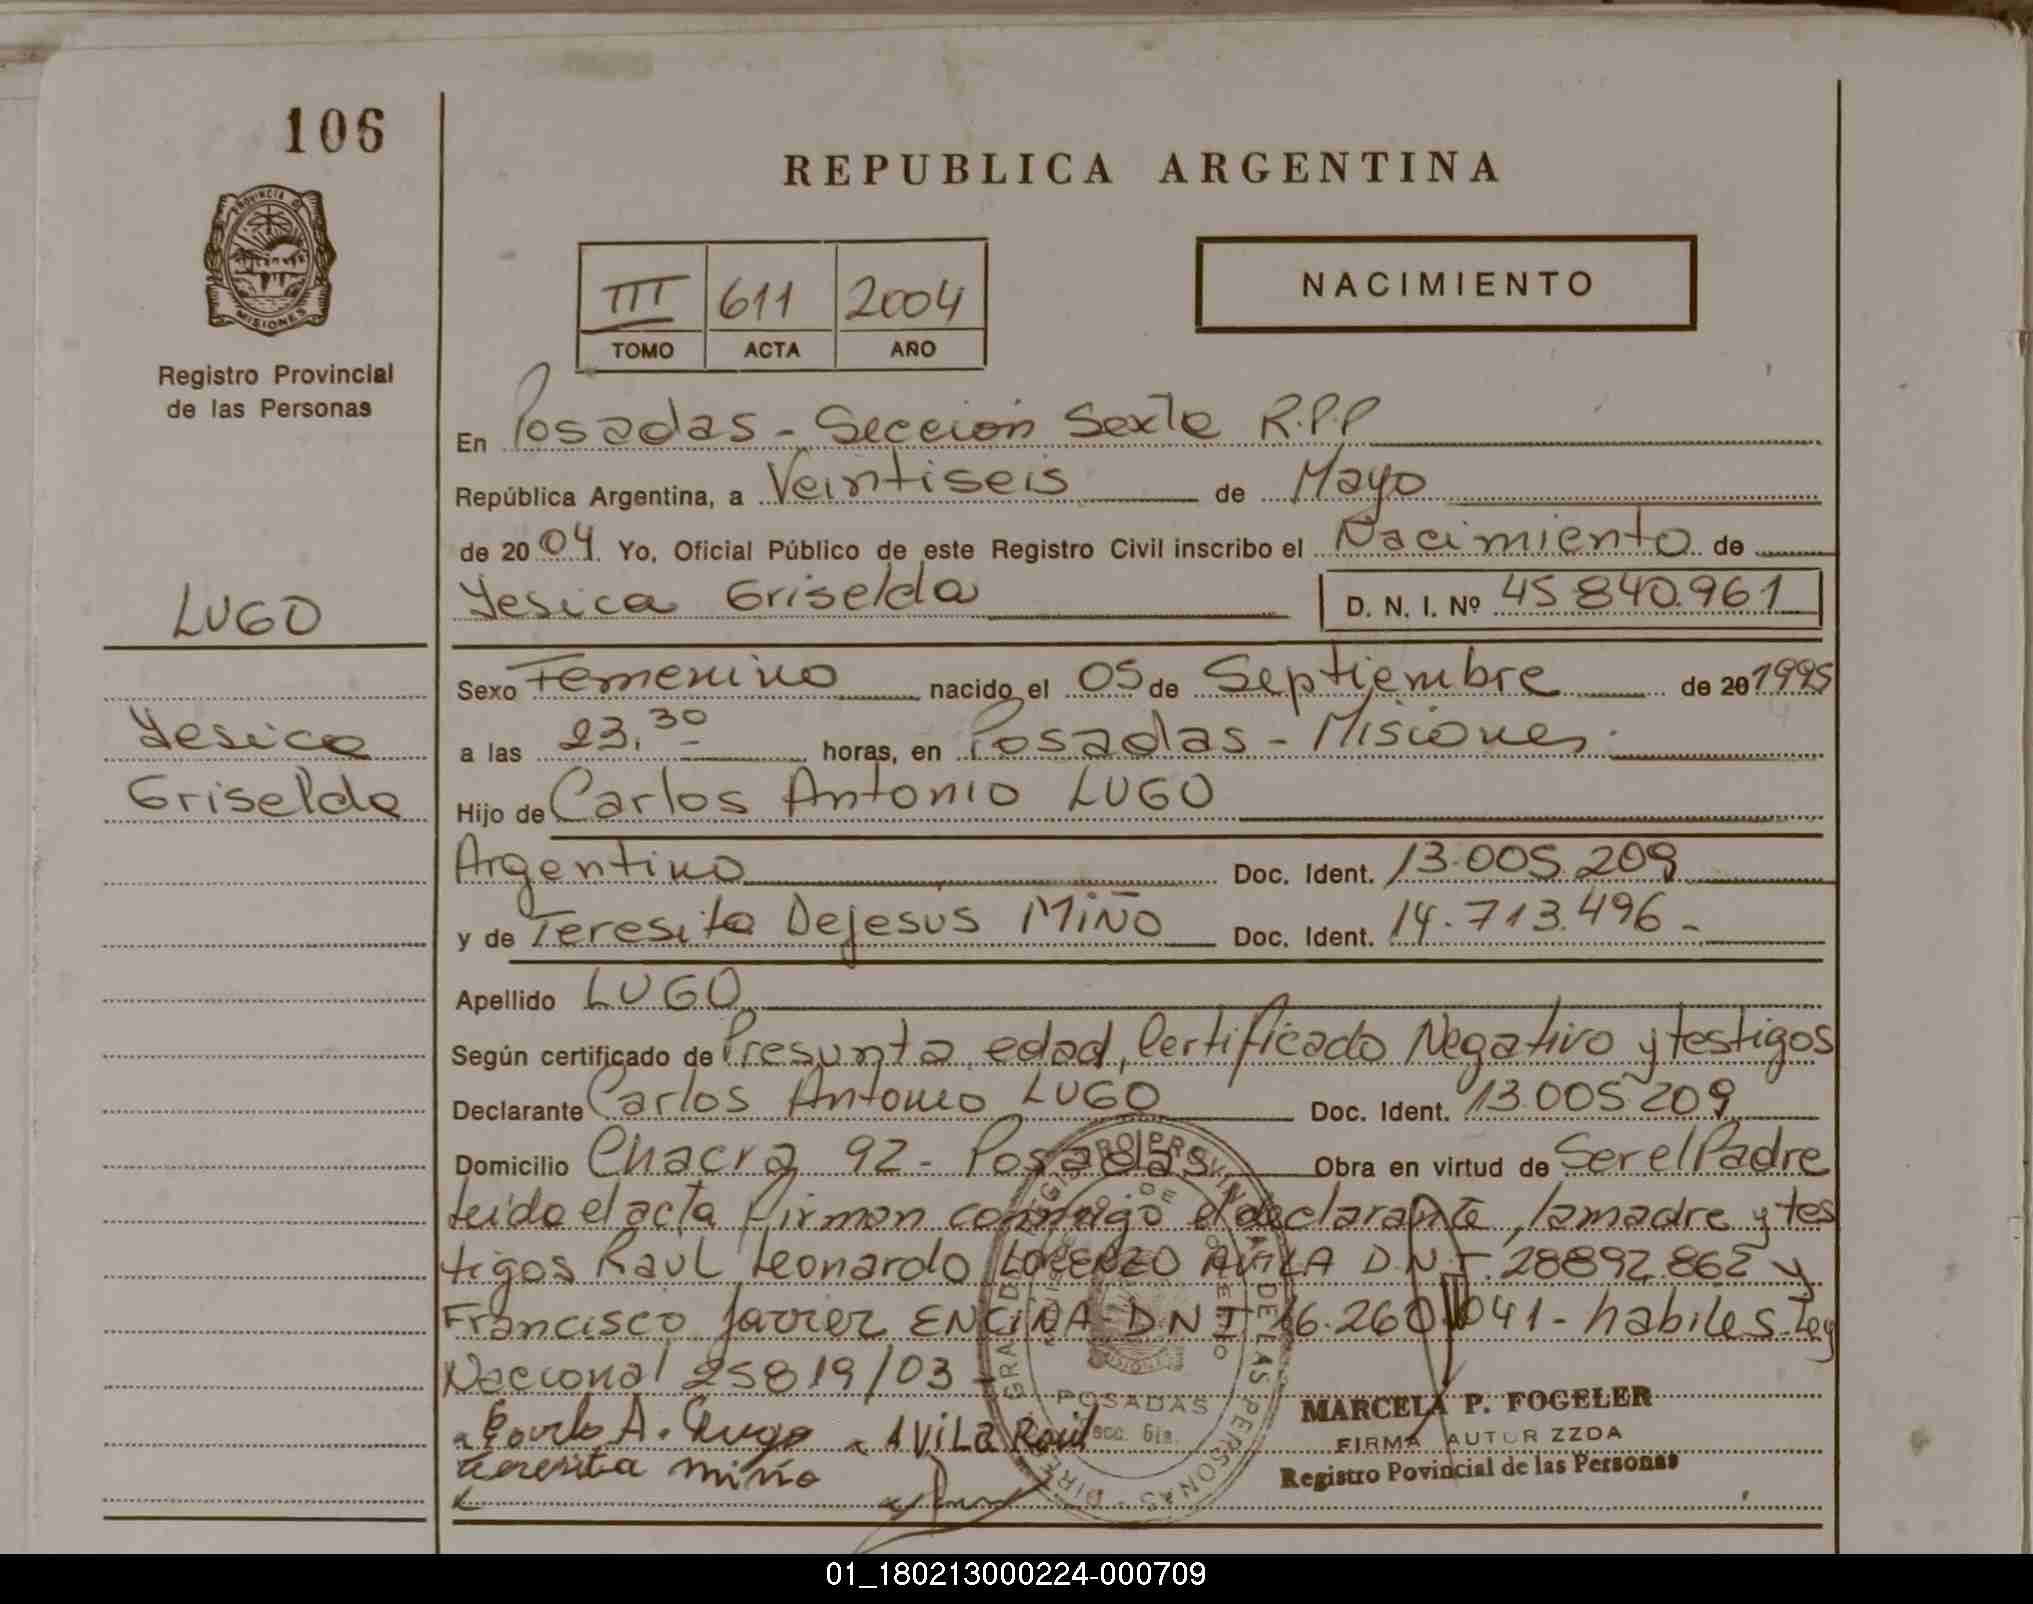 106
REPUBLICA ARGENTINA
PROVINCIA DE
MISIONES
Registro Provincial
de las Personas
III 611 2004
TOMO ACTA AÑO
NACIMIENTO
En Posadas - Sección Sexta R.P.P
República Argentina, a Veintiseis de Mayo
de 2004. Yo, Oficial Público de este Registro Civil inscribo el Nacimiento de
Yesica Griselda D. N. I. Nº 45.840.961
LUGO
Yesica
Griselda
Sexo Femenino nacido el 05 de Septiembre de 20 1995
a las 23,30 horas, en Posadas - Misiones.
Hijo de Carlos Antonio LUGO
Argentino Doc. Ident. 13.005.209
y de Teresita Dejesus MIÑO Doc. Ident. 14.713.496 -
Apellido LUGO
Según certificado de Presunta edad, Certificado Negativo y testigos
Declarante Carlos Antonio LUGO Doc. Ident. 13.005.209
Domicilio Chacra 92 - Posadas Obra en virtud de Ser el Padre
Leido el acta firman conmigo el declarante, la madre y tes
tigos Raul Leonardo LORENZO AVILA D.N.I. 28892.862 y
Francisco Javier ENCINA DNI 16.260.041 - habiles. Ley
Nacional 25819/03 -
Carlo A. Lugo AVILA Raul
teresita miño
REGISTRO PROVINCIAL DE LAS PERSONAS
POSADAS
Secc. 6ta.
MARCELA P. FOGELER
FIRMA AUTORIZZDA
Registro Povincial de las Personas
01_180213000224-000709